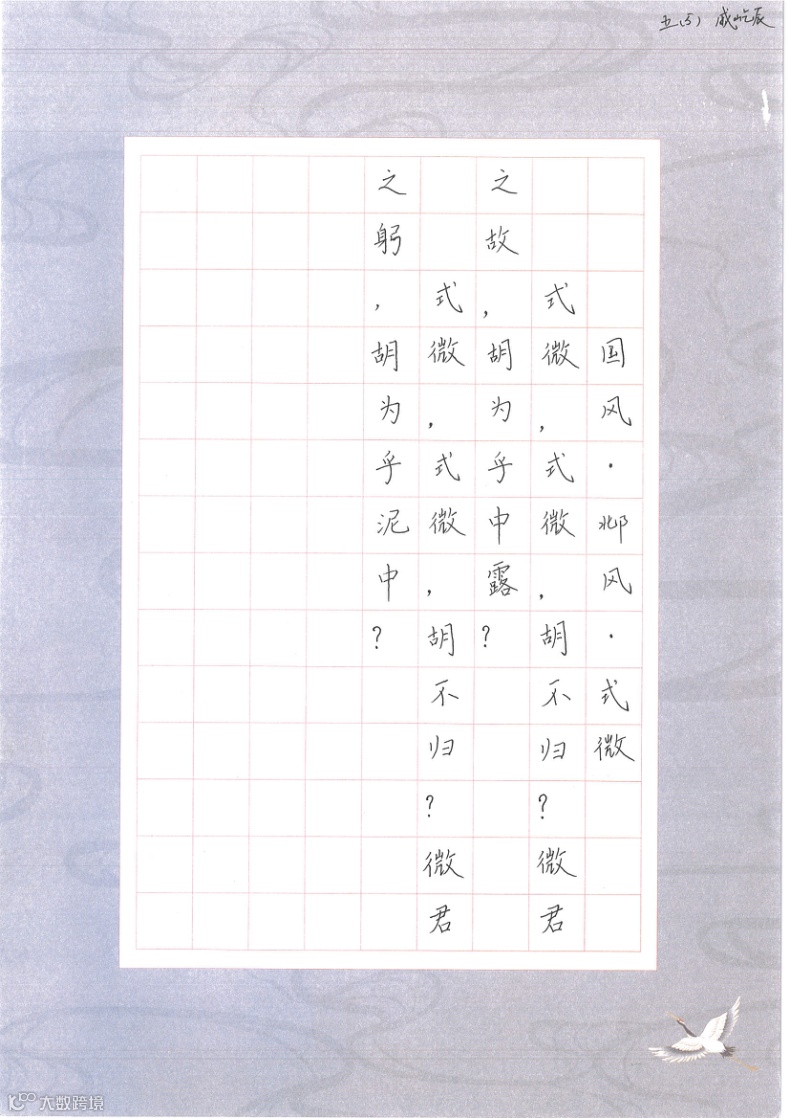 五(5) 戚屹辰
国风·邶风·式微
式微，式微，胡不归？微君
之故，胡为乎中露？
式微，式微，胡不归？微君
之躬，胡为乎泥中？
大数跨境